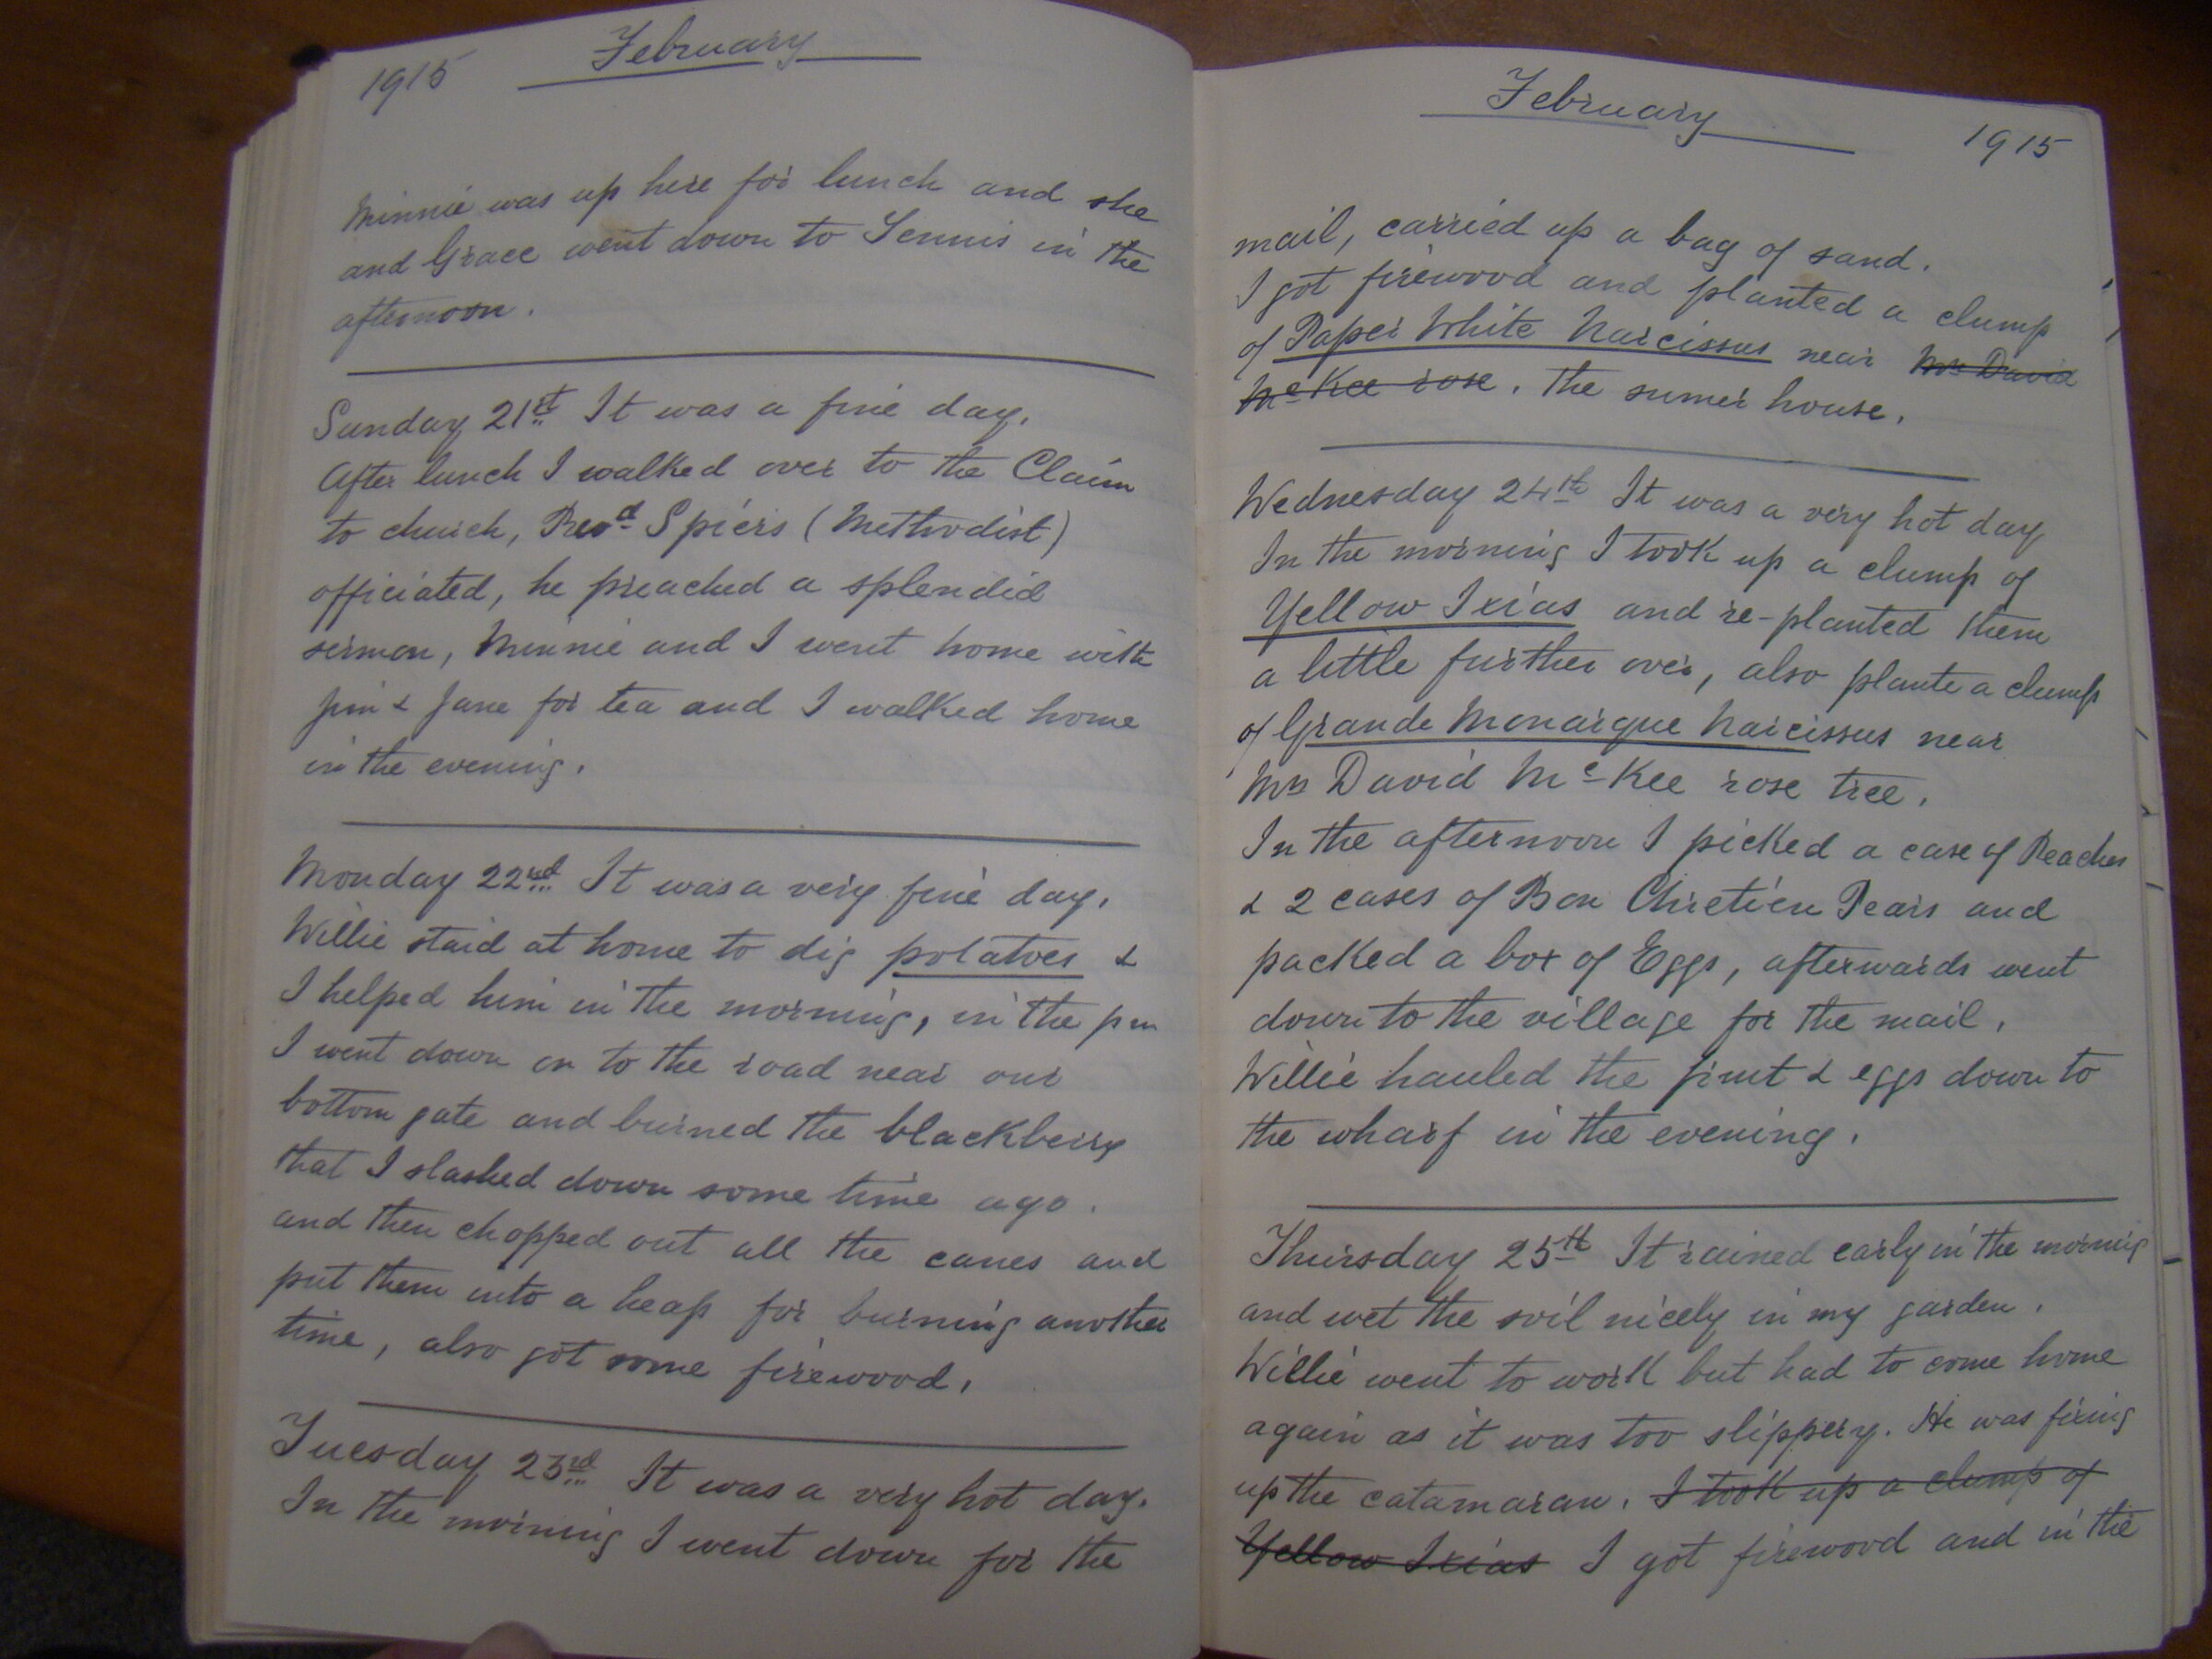 1915 February
Minnie was up here for lunch and she
and Grace went down to Tennis in the
afternoon.
Sunday 21st It was a fine day.
After lunch I walked over to the Claim
to church, Revd Spiers (Methodist)
officiated, he preached a splendid
sermon, Minnie and I went home with
Jim & Jane for tea and I walked home
in the evening.
Monday 22nd It was a very fine day.
Willie staid at home to dig potatoes &
I helped him in the morning, in the pm
I went down on to the road near our
bottom gate and burned the blackberry
that I slashed down some time ago.
and then chopped out all the canes and
put them into a heap for burning another
time, also got some firewood.
Tuesday 23rd It was a very hot day.
In the morning I went down for the
February 1915
mail, carried up a bag of sand.
I got firewood and planted a clump
of Paper White Narcissus near Mrs David
McKee rose. the sumer house.
Wednesday 24th It was a very hot day
In the morning I took up a clump of
Yellow Ixias and re-planted them
a little further over, also plante a clump
of Grande Monarque Narcissus near
Mrs David McKee rose tree.
In the afternoon I picked a case of Peaches
& 2 cases of Bon Chretien Pears and
packed a box of Eggs, afterwards went
down to the village for the mail.
Willie hauled the fruit & eggs down to
the wharf in the evening.
Thursday 25th It rained early in the morning
and wet the soil nicely in my garden.
Willie went to work but had to come home
again as it was too slippery. He was fixing
up the catamaran. I took up a clump of
Yellow Ixias I got firewood and in the